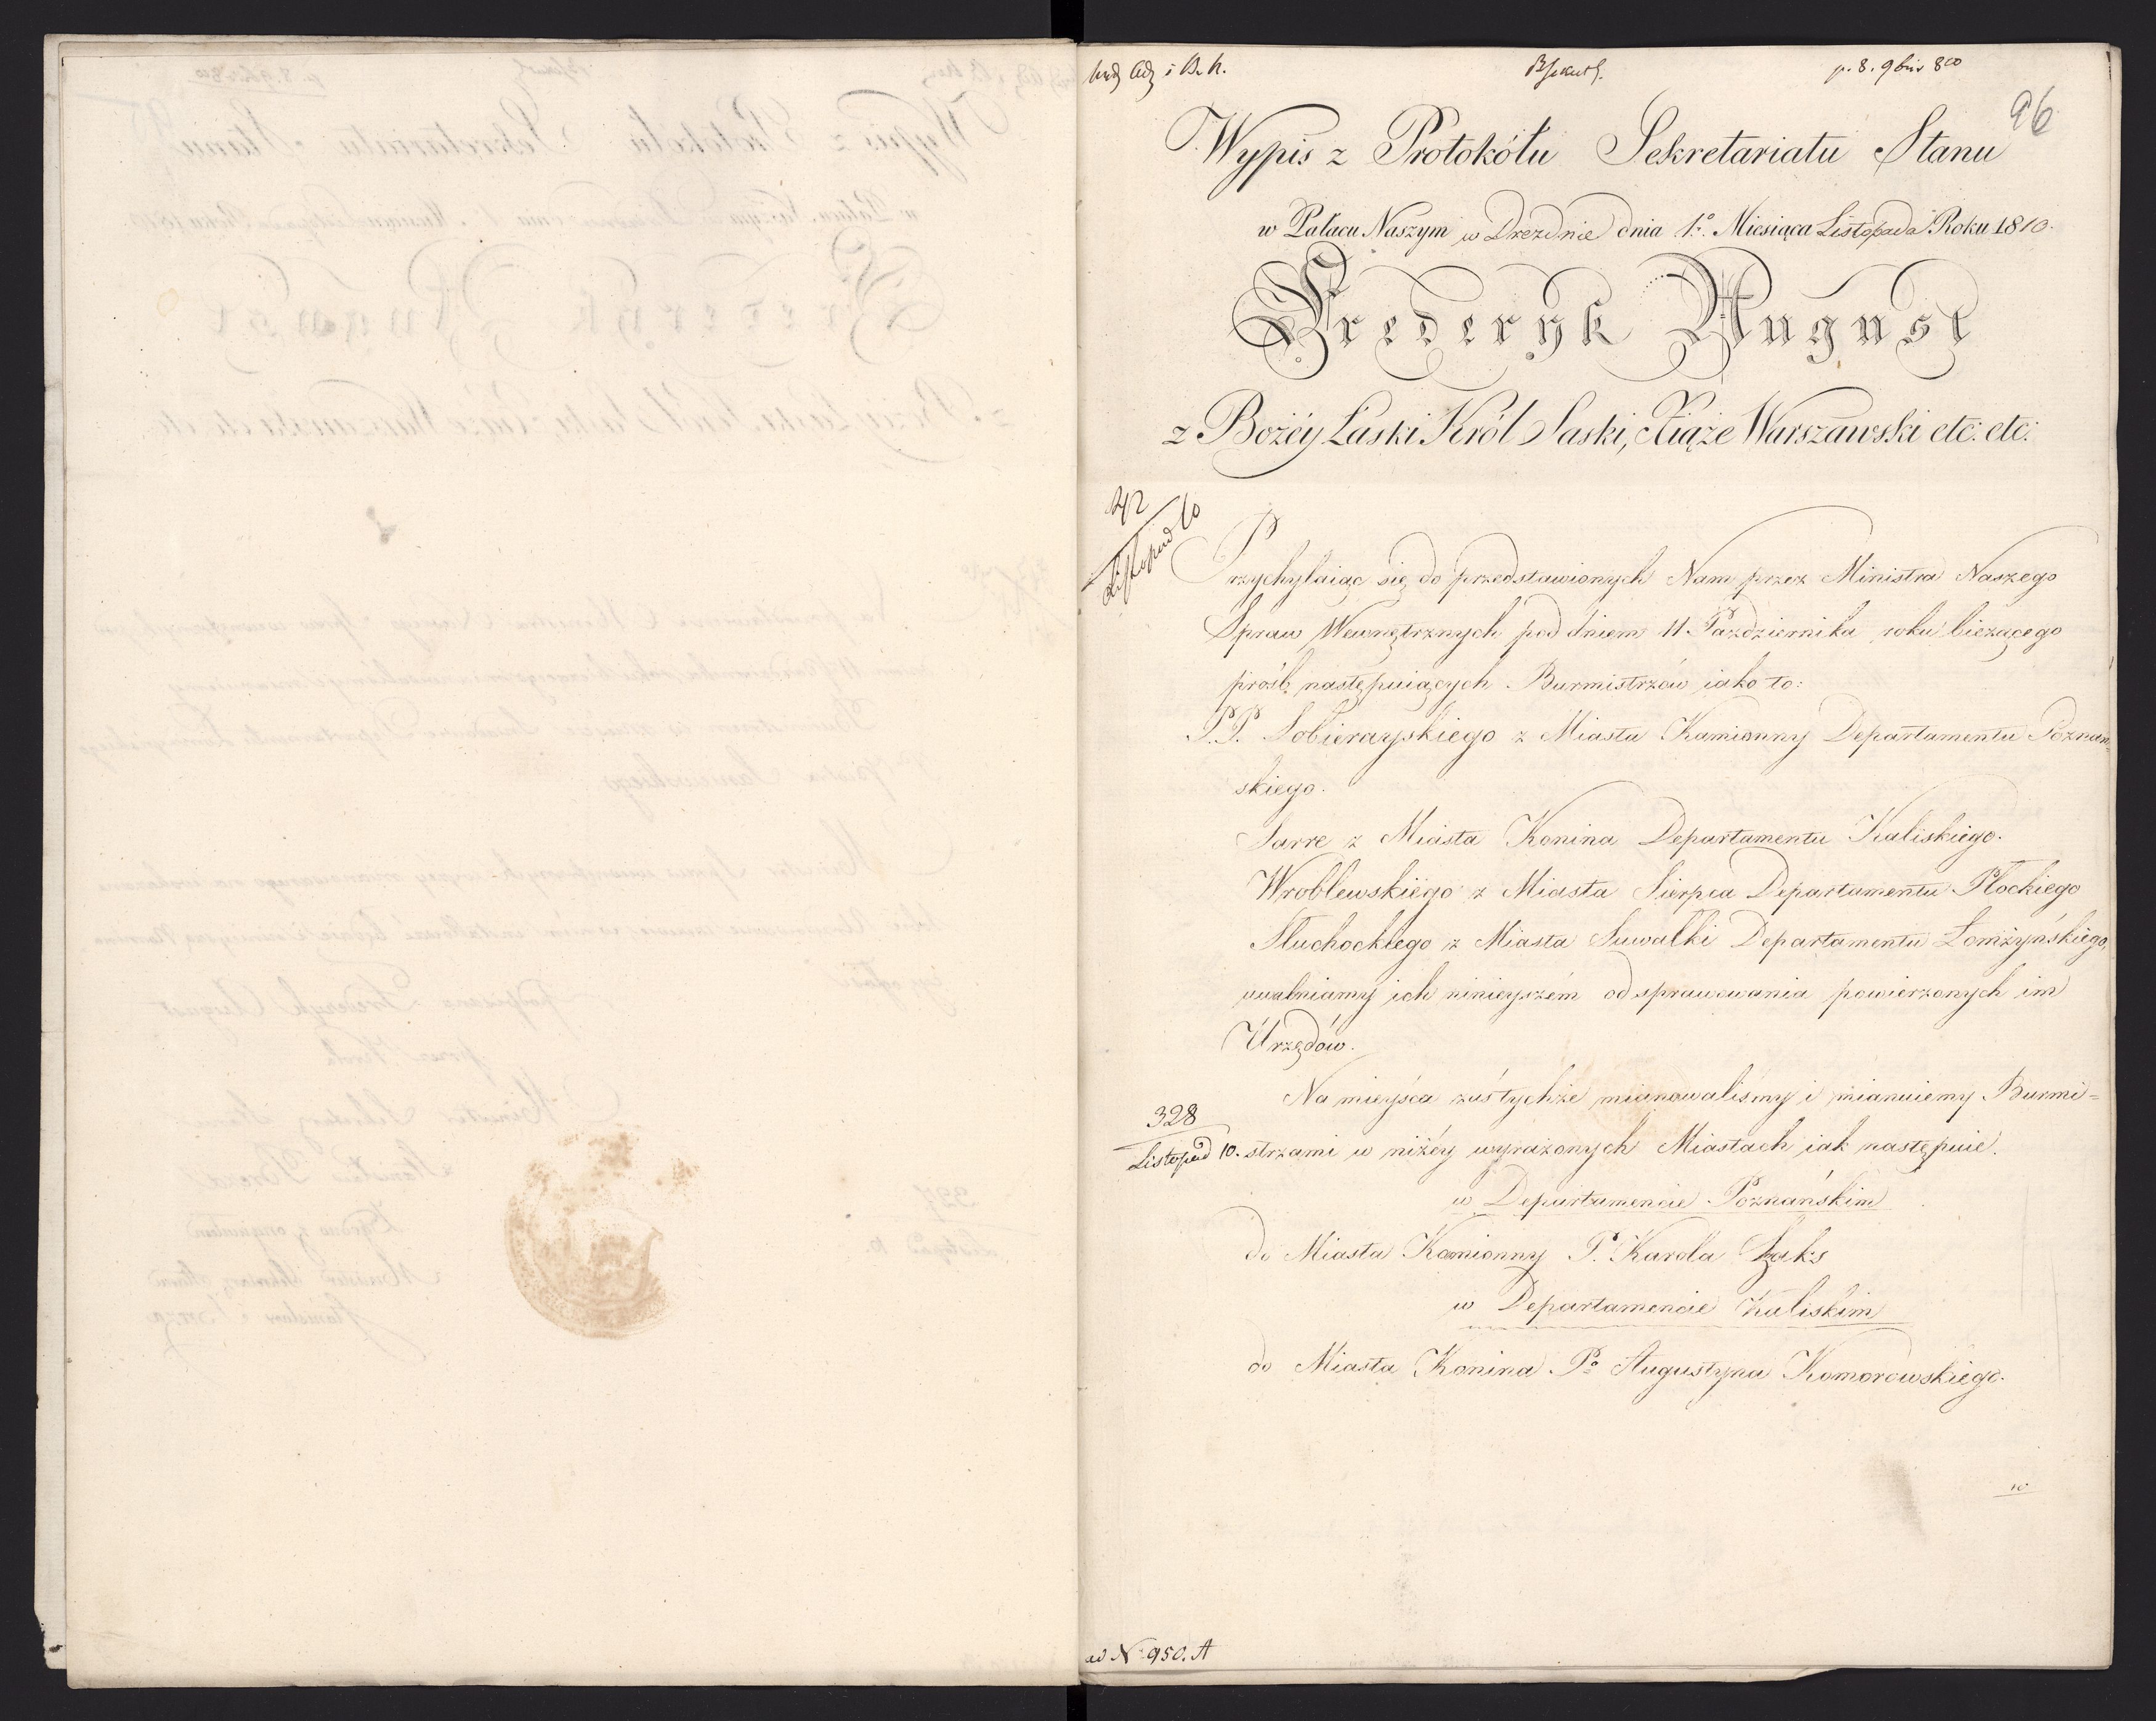 p. 8. 9bris 810
96
Wypis z Protokółu Sekretariatu Stanu
w Pałacu Naszym w Dreznie dnia 1º. Miesiąca Listopada Roku 1810.
Frederyk August
z Bożéy Łaski Król Saski, Xiąże Warszawski etc: etc:
Listopad 10
Przychylaiąc się do przedstawionych Nam przez Ministra Naszego
Spraw Wewnętrznych pod dniem 11 Października roku bieżącego
próśb następuiących Burmistrzów iako to:
P.P. Sobierayskiego z Miasta Kamionny Departamentu Poznań=
skiego.
Sarre z Miasta Konina Departamentu Kaliskiego.
Wroblewskiego z Miasta Sierpca Departamentu Płockiego
Słuchockiego z Miasta Suwałki Departamentu Łomżyńskiego,
uwalniamy ich ninieyszém od sprawowania powierzonych im
Urzędów.
Na mieysca zaś tychże mianowaliśmy i mianuiemy Burmi=
328
Listopad 10.
strzami w niżéy wyrażonych Miastach iak następuie.
w Departamencie Poznańskim
do Miasta Kamionny P. Karola Szaks
w Departamencie Kaliskim
do Miasta Konina Pº Augustyna Komorowskiego.
w
ad Nº 950. A